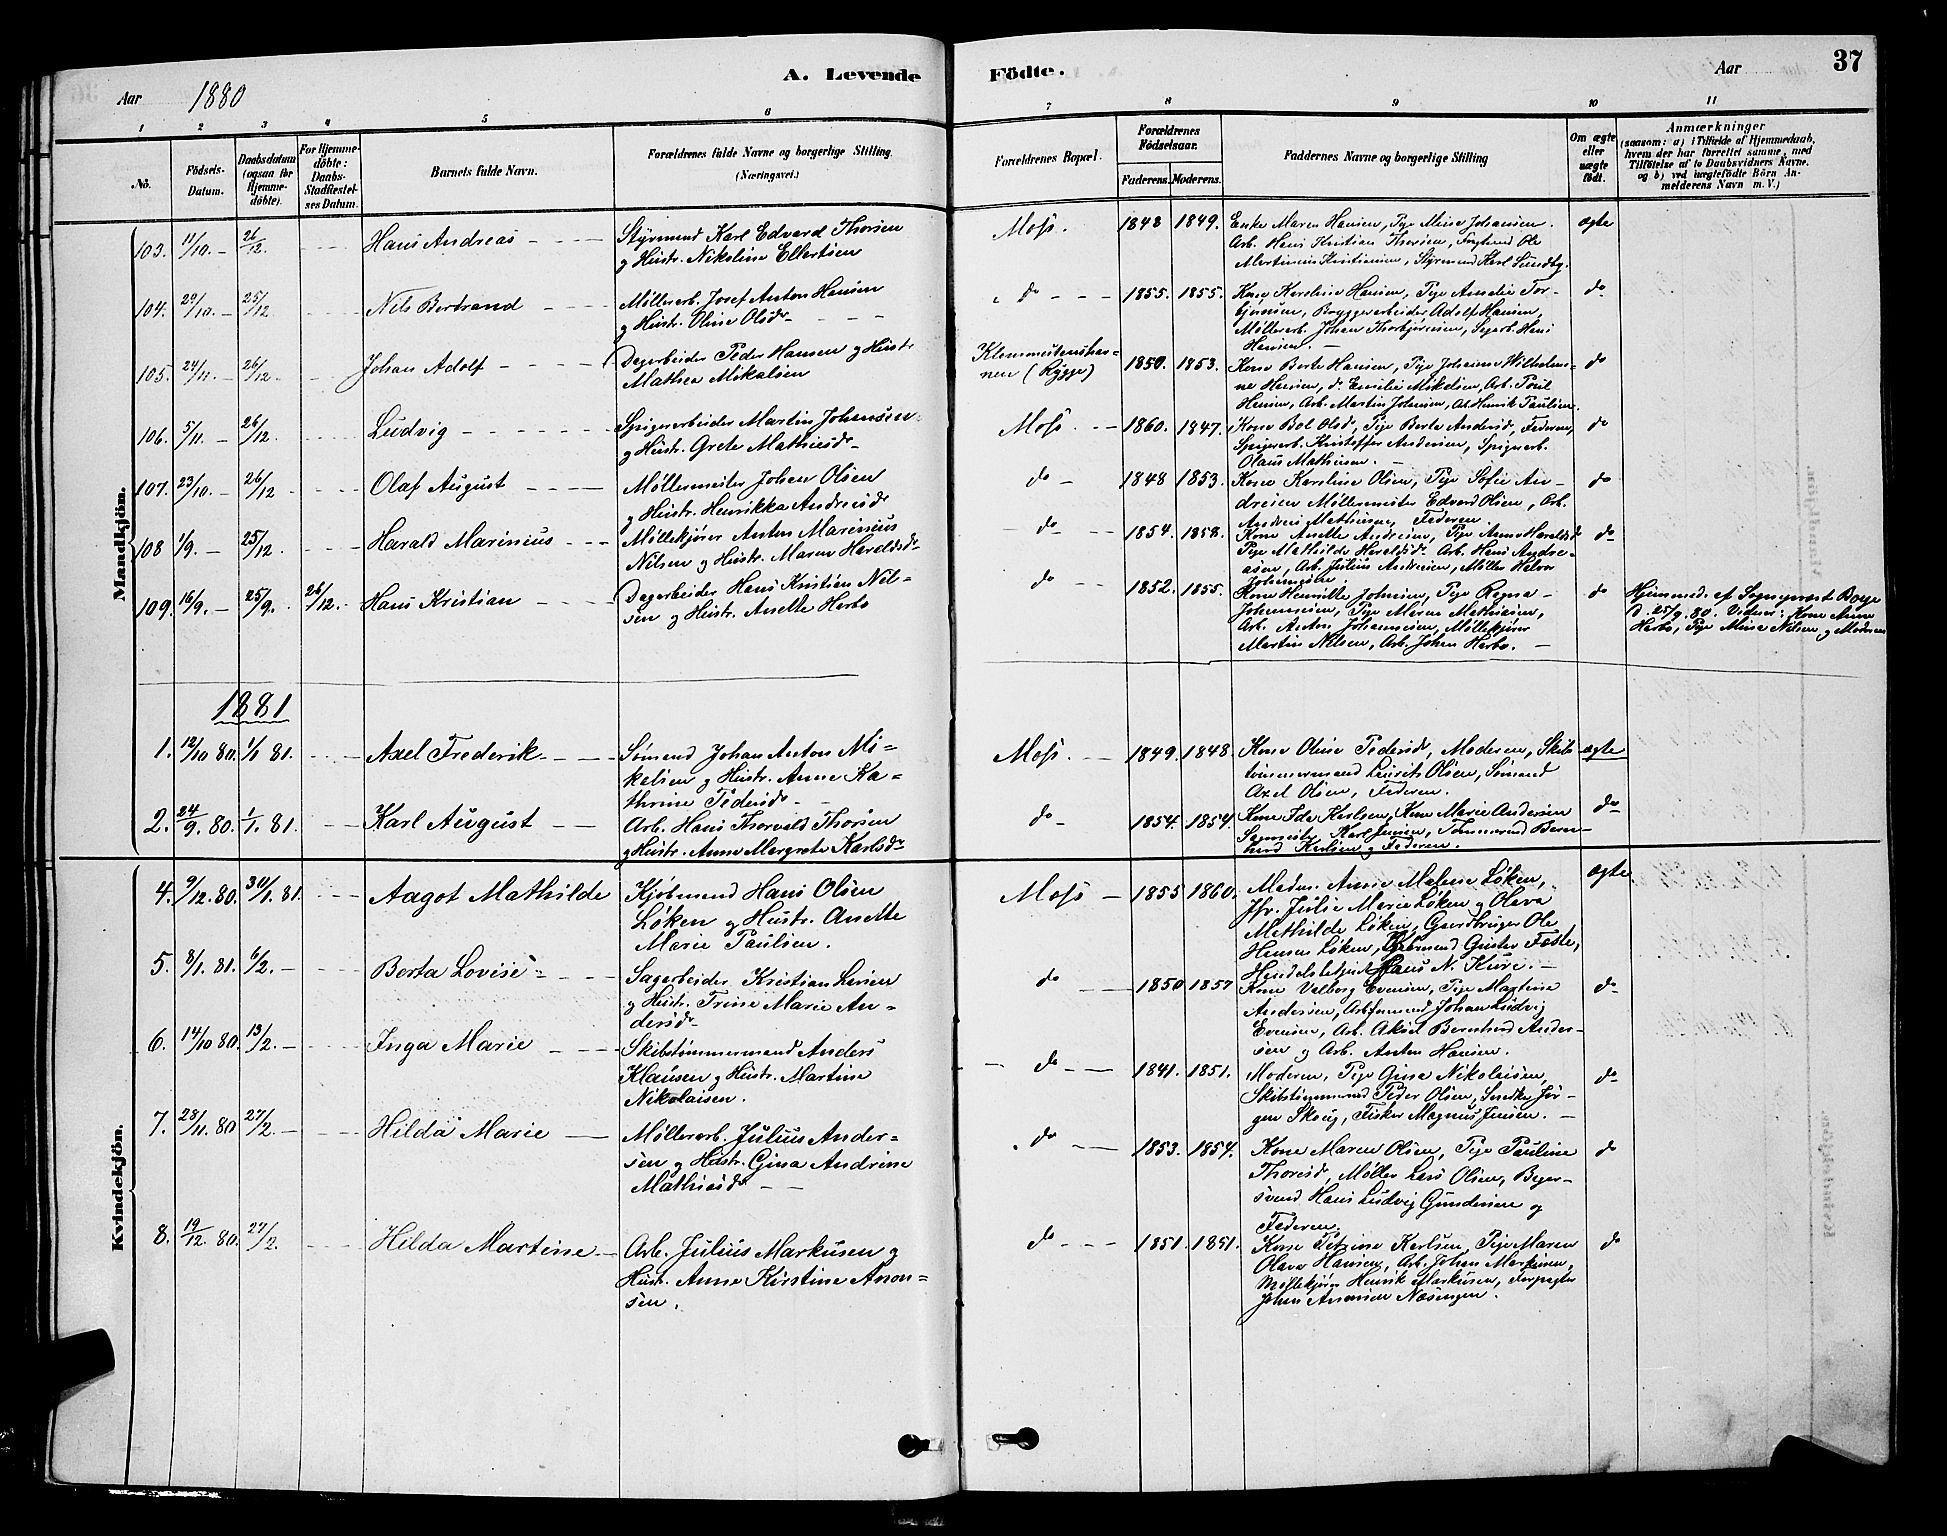 A. Levende Födte.
Aar 1880
Aar 37
1 2 3 4 5 6 7 8 9 10 11
No. Födsels-Datum. Daabsdatum (ogsaa for Hjemme-döbte). For Hjemme-döbte: Daabs-Stadfæstel-ses Datum. Barnets fulde Navn. Forældrenes fulde Navne og borgerlige Stilling. (Næringsvei.)
Forældrenes Bopæl. Forældrenes Födselsaar. Faderens. Moderens. Faddernes Navne og borgerlige Stilling Om ægte eller uægte födt. Anmærkninger (saasom: a) i Tilfælde af Hjemmedaab, hvem der har forrettet samme, med Tilföielse af to Daabsvidners Navne. og b) ved uægtefödte Börn An-melderens Navn m. V.)
Mandkjön.
103. 11/10. – 26/12. Hans Andreas
Styrmand Karl Edvard Thorsen
og Hustr. Nikoline Ellertsen
Moss. 1848 1849. Enke Maren Hansen, Pige Mina Johansen.
Arb. Hans Kristian Thorsen, Fragtmd Ole
Martinius Kristiansen, Styrmand Karl Sundby.
ægte
104. 29/10. – 25/12 Nils Bertrand
Møllerarb. Josef Anton Hansen
og Hustr. Oline Olsdr
do 1855. 1855. Kone Karoline Hansen, Pige Amalie Tor-
bjørnsen, Bryggerarbeider Adolf Hansen,
Møllerarb. Johan Thorbjørnsen, Sagarb. Hans
Hansen.
do
105. 24/11. – 26/12 Johan Adolf
Dagarbeider Peder Hansen og Hustr
Mathea Mikalsen
nen (Rygge) 1850. 1853. Kone Berte Hansen, Pige Johanne Wilhelmi-
ne Hansen, do Emilie Mikelsen, Arb. Poul
Hansen, Arb. Martin Johansen, Arb. Henrik Paulsen.
do
106. 5/11. – 26/12 Ludvig
Spigerarbeider Martin Johansen
og Hustr. Grete Mathiesdr
Moss. 1860. 1847. Kone Bol Olsd, Pige Berte Andersd, Faderen,
Spigerarb. Kristoffer Andersen, Spigerarb.
Olaus Mathisen.
do
107. 23/10. – 26/12 Olaf August
Møllermester Johan Olsen
og Hustr. Henrikka Andreasd
do 1848 1853. Kone Karoline Olsen, Pige Sofie An-
dresen Møllermester Edvard Olsen, Arb.
Andreas Mathisen, Faderen.
do
108 1/9. – 25/12. Harald Marinius
Møllekjører Anton Marinius
Nilsen og Hustr. Maren Haraldsdr
do 1854. 1858. Kone Anette Andresen, Pige Anna Haraldsd
Pige Mathilde Haraldsdr. Arb. Hans Andre-
asen, Arb. Julius Andresen, Møller Halvor
Johannesen.
do
109. 16/9. – 25/9. 26/12. Hans Kristian
Dagarbeider Hans Kristian Nil-
sen og Hustr. Anette Herbo
do 1852. 1855. Kone Henriette Johnsen, Pige Regna
Johannesen, Pige Maren Mathisen,
Arb. Anton Johannesen, Møllekjører
Martin Nilsen, Arb. Johan Herbo.
do Hjemmed. af Sognepræst Borge
d. 25/9 80. Vidner: Kone Anne
Herbo, Pige Mina Nilsen og Moderen
1881
1. 12/10 80. 1/1 81. Axel Frederik
Sømand Johan Anton Mi-
kelsen og Hustr. Anne Ka-
thrine Pedersdr
Moss. 1849. 1848. Kone Oline Pedersdr, Moderen, Skibs
tømmermand Laurits Olsen, Sømand
Axel Olsen, Faderen.
ægte
2. 24/9. 80. 1/1. 81. Karl August
Arb. Hans Thorvald Thorsen
og Hustr. Anne Margrete Karlsdr
do 1854. 1854. Kone Ida Karlsen, Kone Marie Andersen
Sagmester Karl Jensen, Tømmermd Bern-
hard Karlsen og Faderen.
do
Kvindekjön.
4. 9/12. 80. 30/1. 81. Aagot Mathilde
Kjøbmand Hans Olsen
Løken og Hustr. Anette
Marie Paulsen.
Moss 1855 1860. Madm. Anne Malene Løken,
Jfr. Julie Marie Løken og Olava
Mathilde Løken, Gaardbruger Ole
Hansen Løken, Kjøbmand Gustav Fæste,
Handelsbetjent Hans N. Kure.
ægte
5. 8/1. 81. 6/2. – Berta Lovise
Sagarbeider Kristian Larsen
og Hustr. Trine Marie An-
dersdr
do 1850 1857 Kone Valborg Evensen, Pige Martine
Andersen, Arbformand Johan Ludvig
Evensen, Arb. Aksel Bernhard Ander-
sen og Arb. Anton Hansen.
do
6. 14/10 80. 13/2. – Inga Marie
Skibstømmermand Anders
Klausen og Hustr. Martine
Nikolaisen.
do 1841. 1851. Moderen, Pige Gina Nikolaisen,
Skibstømmermand Peder Olsen, Snedker Jør-
gen Skoug, Fisker Magnus Jensen.
do
7. 28/11. 80 27/2. – Hilda Marie
Møllerarb. Julius Ander-
sen og Hustr. Gina Andrine
Mathiasdr
do 1853. 1854. Kone Maren Olsen, Pige Pauline
Thoresdr, Møller Lars Olsen, Bager-
svend Hans Ludvig Gundersen og
Faderen.
do
8. 19/12. 80. 27/2. Hilda Martine
Arb. Julius Markusen og
Hustr. Anne Kirstine Aron-
sen.
do 1851. 1851. Kone Petrine Karlsen, Pige Maren
Olava Hansen, Arb. Johan Martinsen,
Møllekjører Henrik Markusen, Forpagter
Johan Aronsen Næsengen.
do